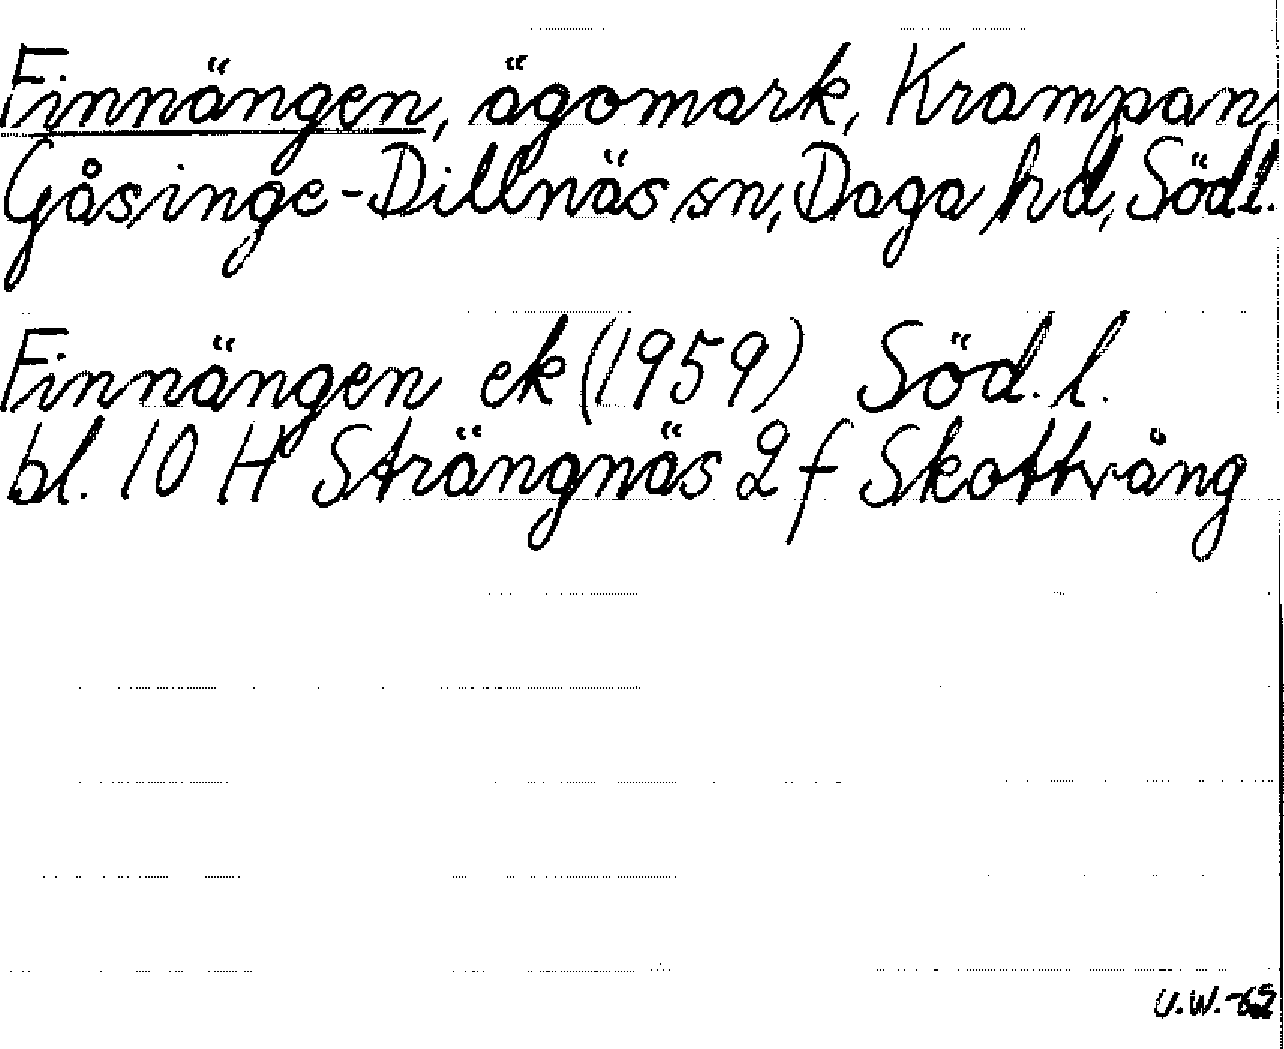 Finnängen, ägomark, Krampan,
Gåsinge-Dillnäs sn, Daga hd, Södl.
Finnängen ek (1959) Söd. l.
bl. 10 H Strängnäs 2 f Skottvång
U.W.